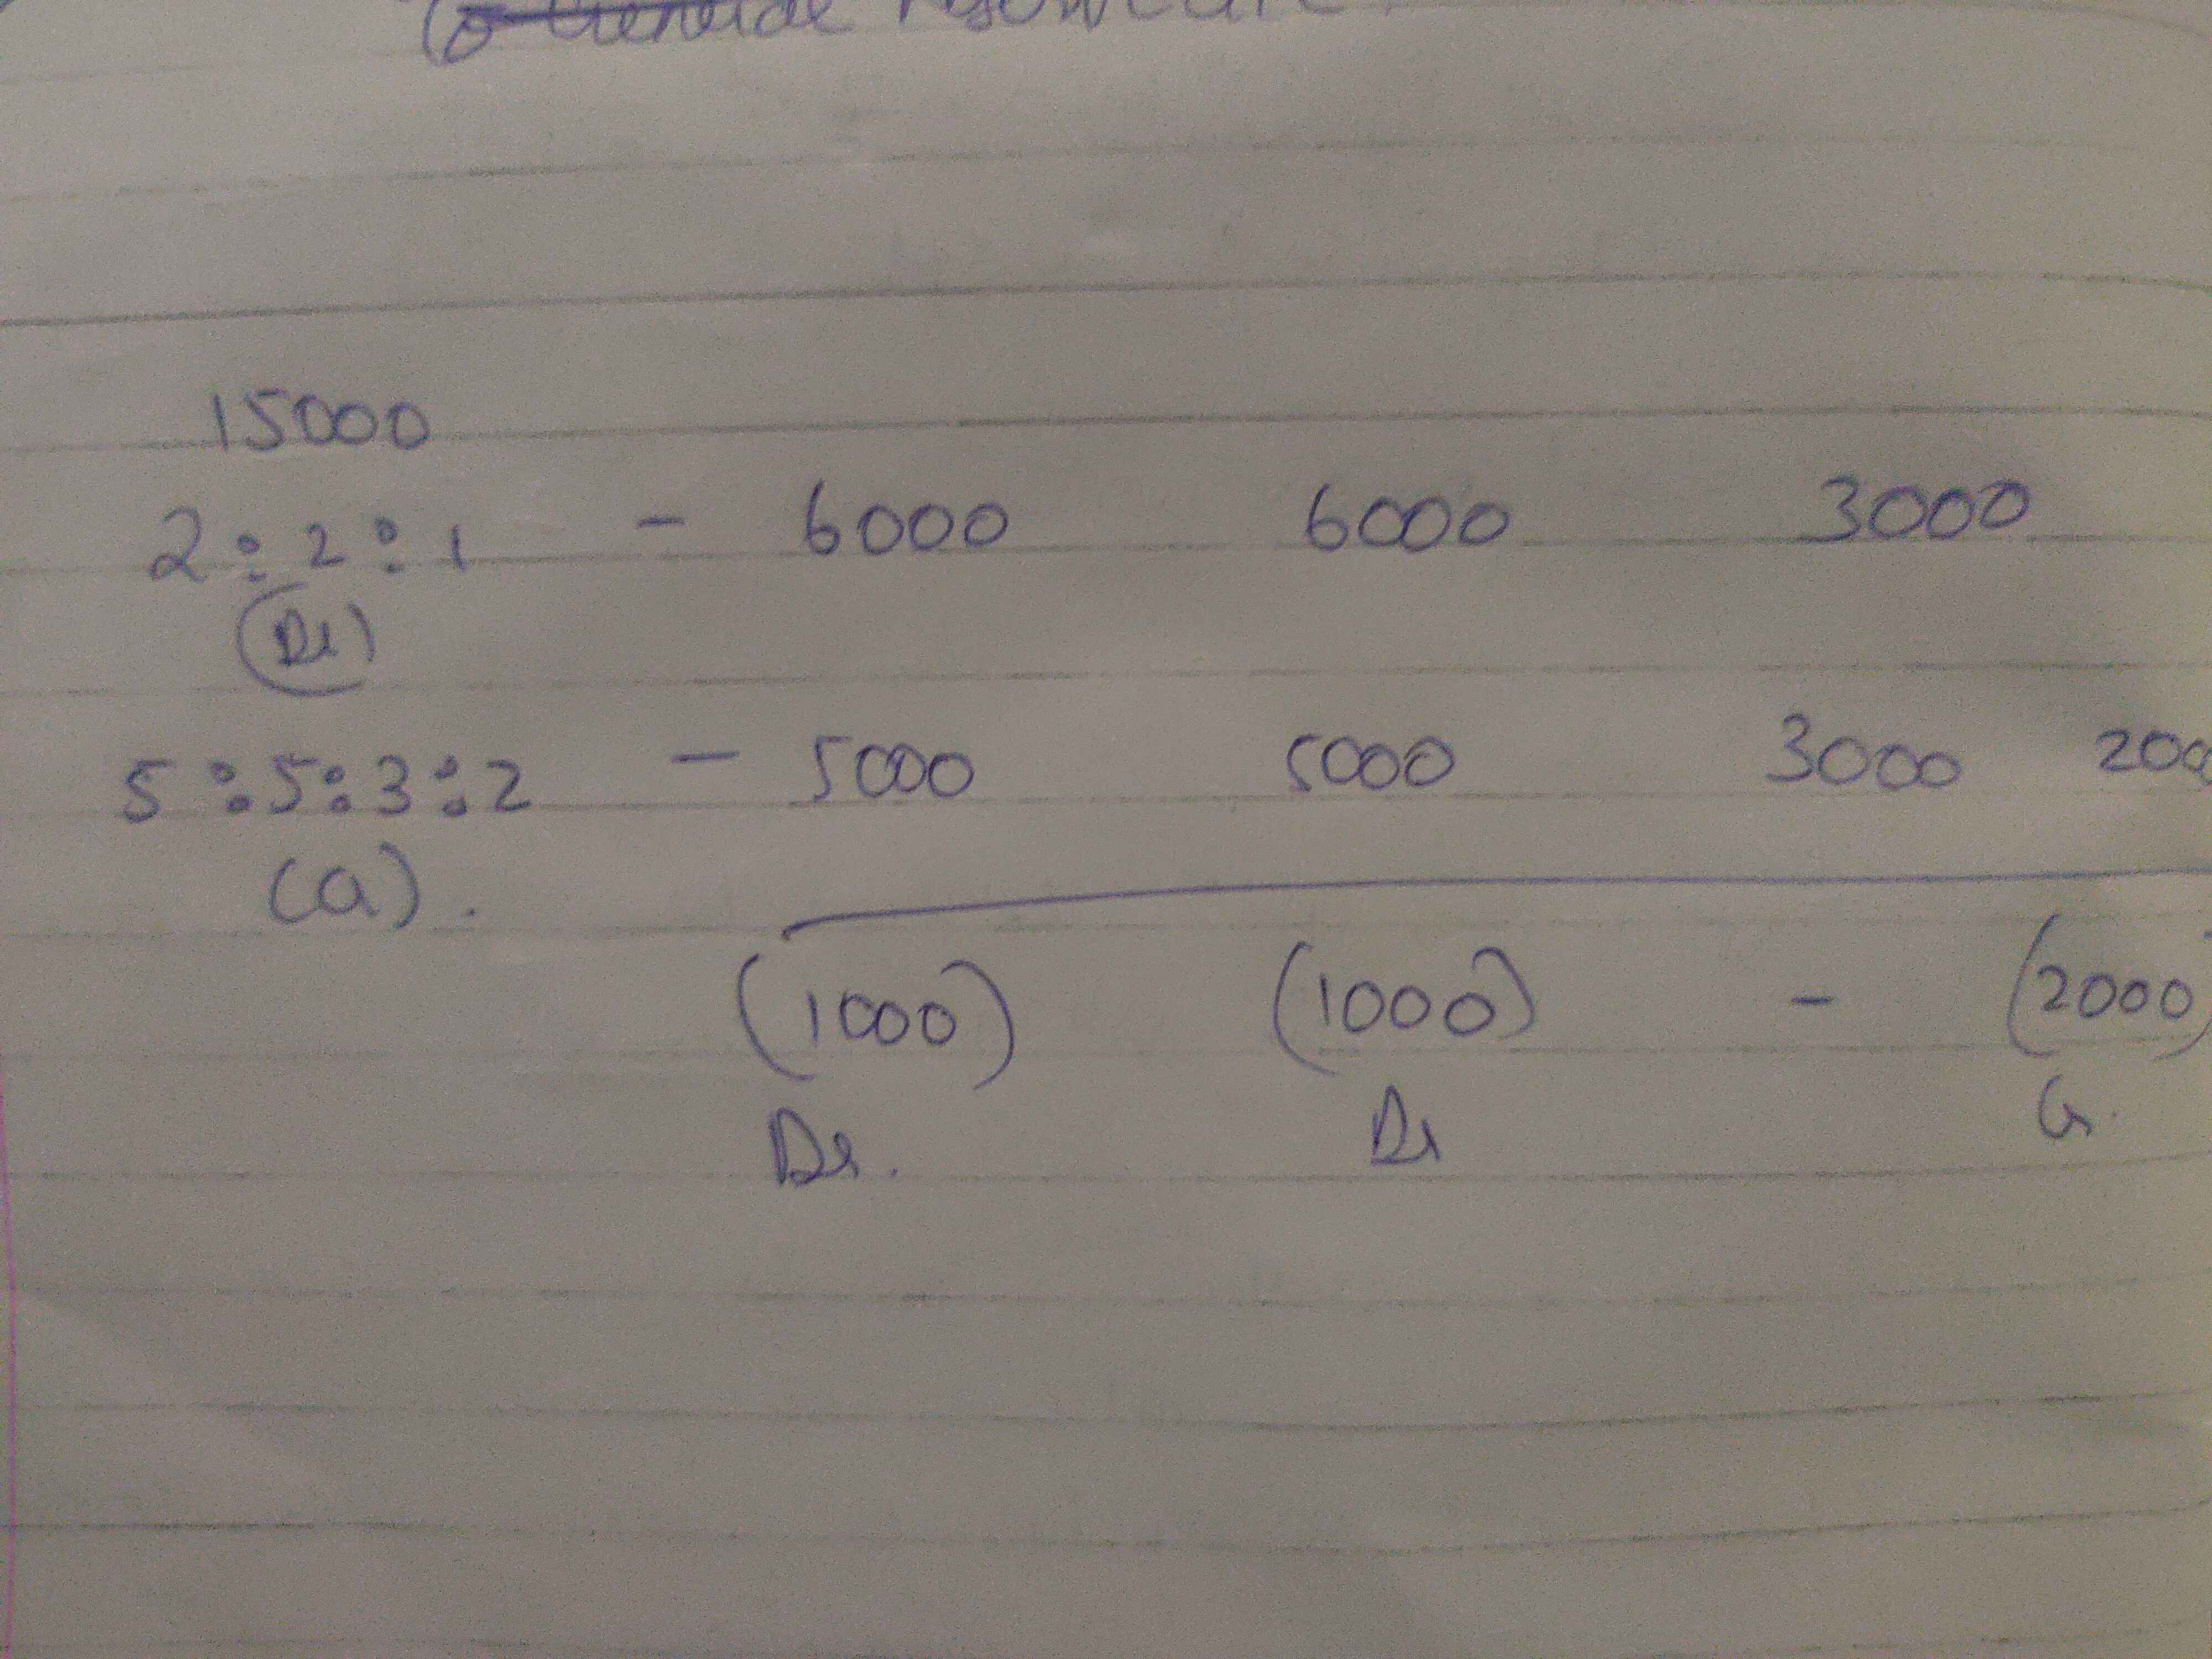 15000
2 : 2 : 1 - 6000 6000 3000
(Dr)
5 : 5 : 3 : 2 - 5000 5000 3000 200
(Cr).
(1000) (1000) - (2000)
Dr. Dr Cr.